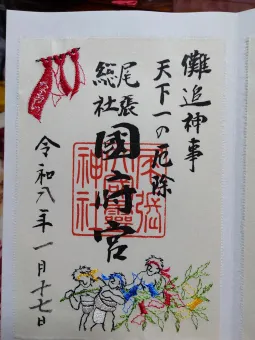 儺追神事
天下一の厄除
尾張
総社
國府宮
令和八年一月十七日
尾張
神社